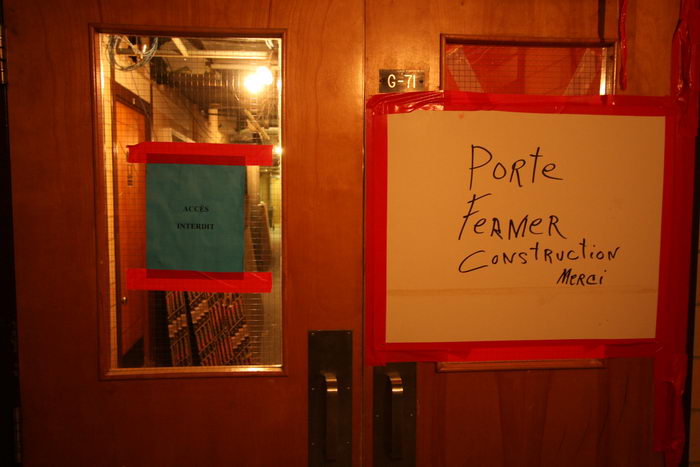 G-71
ACCÈS
INTERDIT
PORTE
FERMER
CONSTRUCTION
MERCI